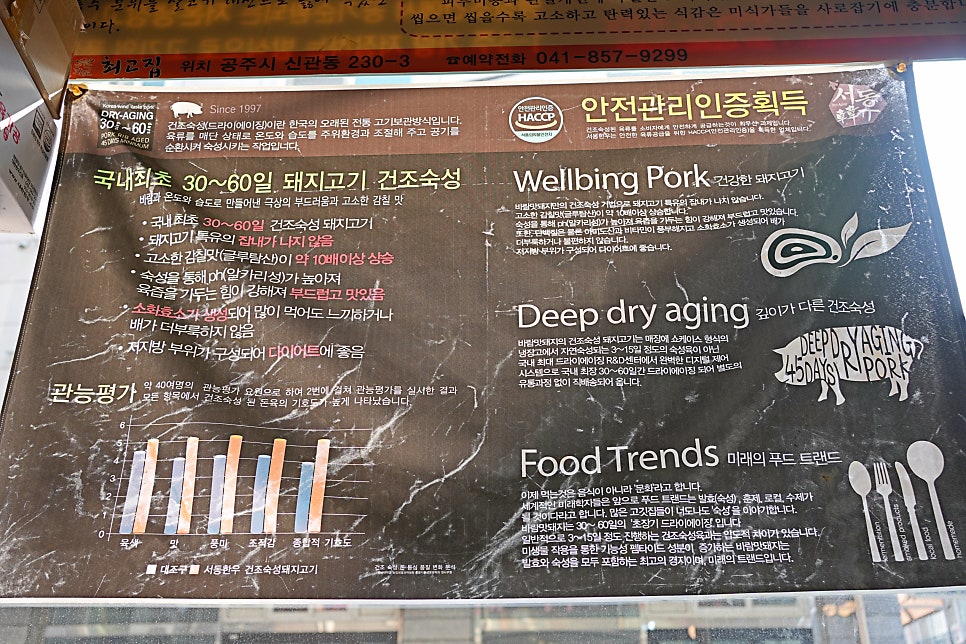 씹으면 씹을수록 고소하고 탄력있는 식감은 미식가들을 사로잡기에 충분합
이다.
최고집 위치 공주시 신관동 230-3 ☎예약전화 041-857-9299
DRY-AGING
30 60
45 DAYS MINIMUM
Since 1997
건조숙성(드라이에이징)이란 한국의 오래된 전통 고기보관방식입니다.
육류를 매단 상태로 온도와 습도를 주위환경과 조절해 주고 공기를
순환시켜 숙성시키는 작업입니다.
국내최초 30~60일 돼지고기 건조숙성
바람과 온도와 습도로 만들어낸 극상의 부드러움과 고소한 감칠 맛
• 국내최초 30~60일 건조숙성 돼지고기
• 돼지고기 특유의 잡내가 나지 않음
• 고소한 감칠맛(글루탐산)이 약 10배이상 상승
• 숙성을 통해 ph(알카리성)가 높아져
육즙을 가두는 힘이 강해져 부드럽고 맛있음
• 소화효소가 생성되어 많이 먹어도 느끼하거나
배가 더부룩하지 않음
• 저지방 부위가 구성되어 다이어트에 좋음
관능평가 약 40여명의 관능평가 요원으로 하여 2번에 걸쳐 관능평가를 실시한 결과
모든 항목에서 건조숙성 된 돈육의 기호도가 높게 나타났습니다.
6
5
4
3
2
1
0
육색 맛 풍미 조직감 종합적 기호도
■ 대조구 ■ 서동한우 건조숙성돼지고기
안전관리인증
HACCP
안전관리인증획득
건조숙성된 육류를 소비자에게 안전하게 공급하는것이 최우선 과제입니다.
서동한우는 안전한 육류공급을 위한 HACCP(안전관리인증)을 획득한 업체입니다.
서동
Wellbing Pork 건강한 돼지고기
바람맛돼지만의 건조숙성 기법으로 돼지고기 특유의 잡내가 나지 않습니다.
고소한 감칠맛(글루탐산)이 약 10배이상 상승합니다.
숙성을 통해 ph(알카리성)가 높아져 육즙을 가두는 힘이 강해져 부드럽고 맛있습니다.
또한, 단백질은 물론 아미노산과 비타민이 풍부해지고 소화효소가 생성되어 배가
더부룩하거나 불편하지 않습니다.
저지방 부위가 구성되어 다이어트에 좋습니다.
Deep dry aging 깊이가 다른 건조숙성
바람맛돼지의 건조숙성 돼지고기는 매장에 쇼케이스 형식의
냉장고에서 자연숙성되는 3~15일 정도의 숙성육이 아닌
국내 최대 드라이에이징 R&D센터에서 완벽한 디지털 제어
시스템으로 국내 최장 30~60일간 드라이에이징 되어 별도의
유통과정 없이 직배송되어 옵니다.
DEEP DRY AGING
45DAYS PORK
Food Trends 미래의 푸드 트랜드
이제 먹는것은 음식이 아니라 '문화'라고 합니다.
세계적인 미래학자들은 앞으로 푸드 트랜드는 발효(숙성), 훈제, 로컬, 수제가
될 것이다라고 합니다. 많은 고깃집들이 너도나도 '숙성'을 이야기합니다.
바람맛돼지는 30~60일의 '초장기 드라이에이징'입니다
일반적으로 3~15일 정도 진행하는 건조숙성육과는 압도적 차이가 있습니다.
미생물 작용을 통한 기능성 펩타이드 성분이 증가하는 바람맛돼지는
발효와 숙성을 모두 포함하는 최고의 경지이며, 미래의 트랜드입니다.
fermentation
smoked products
local food
homemade